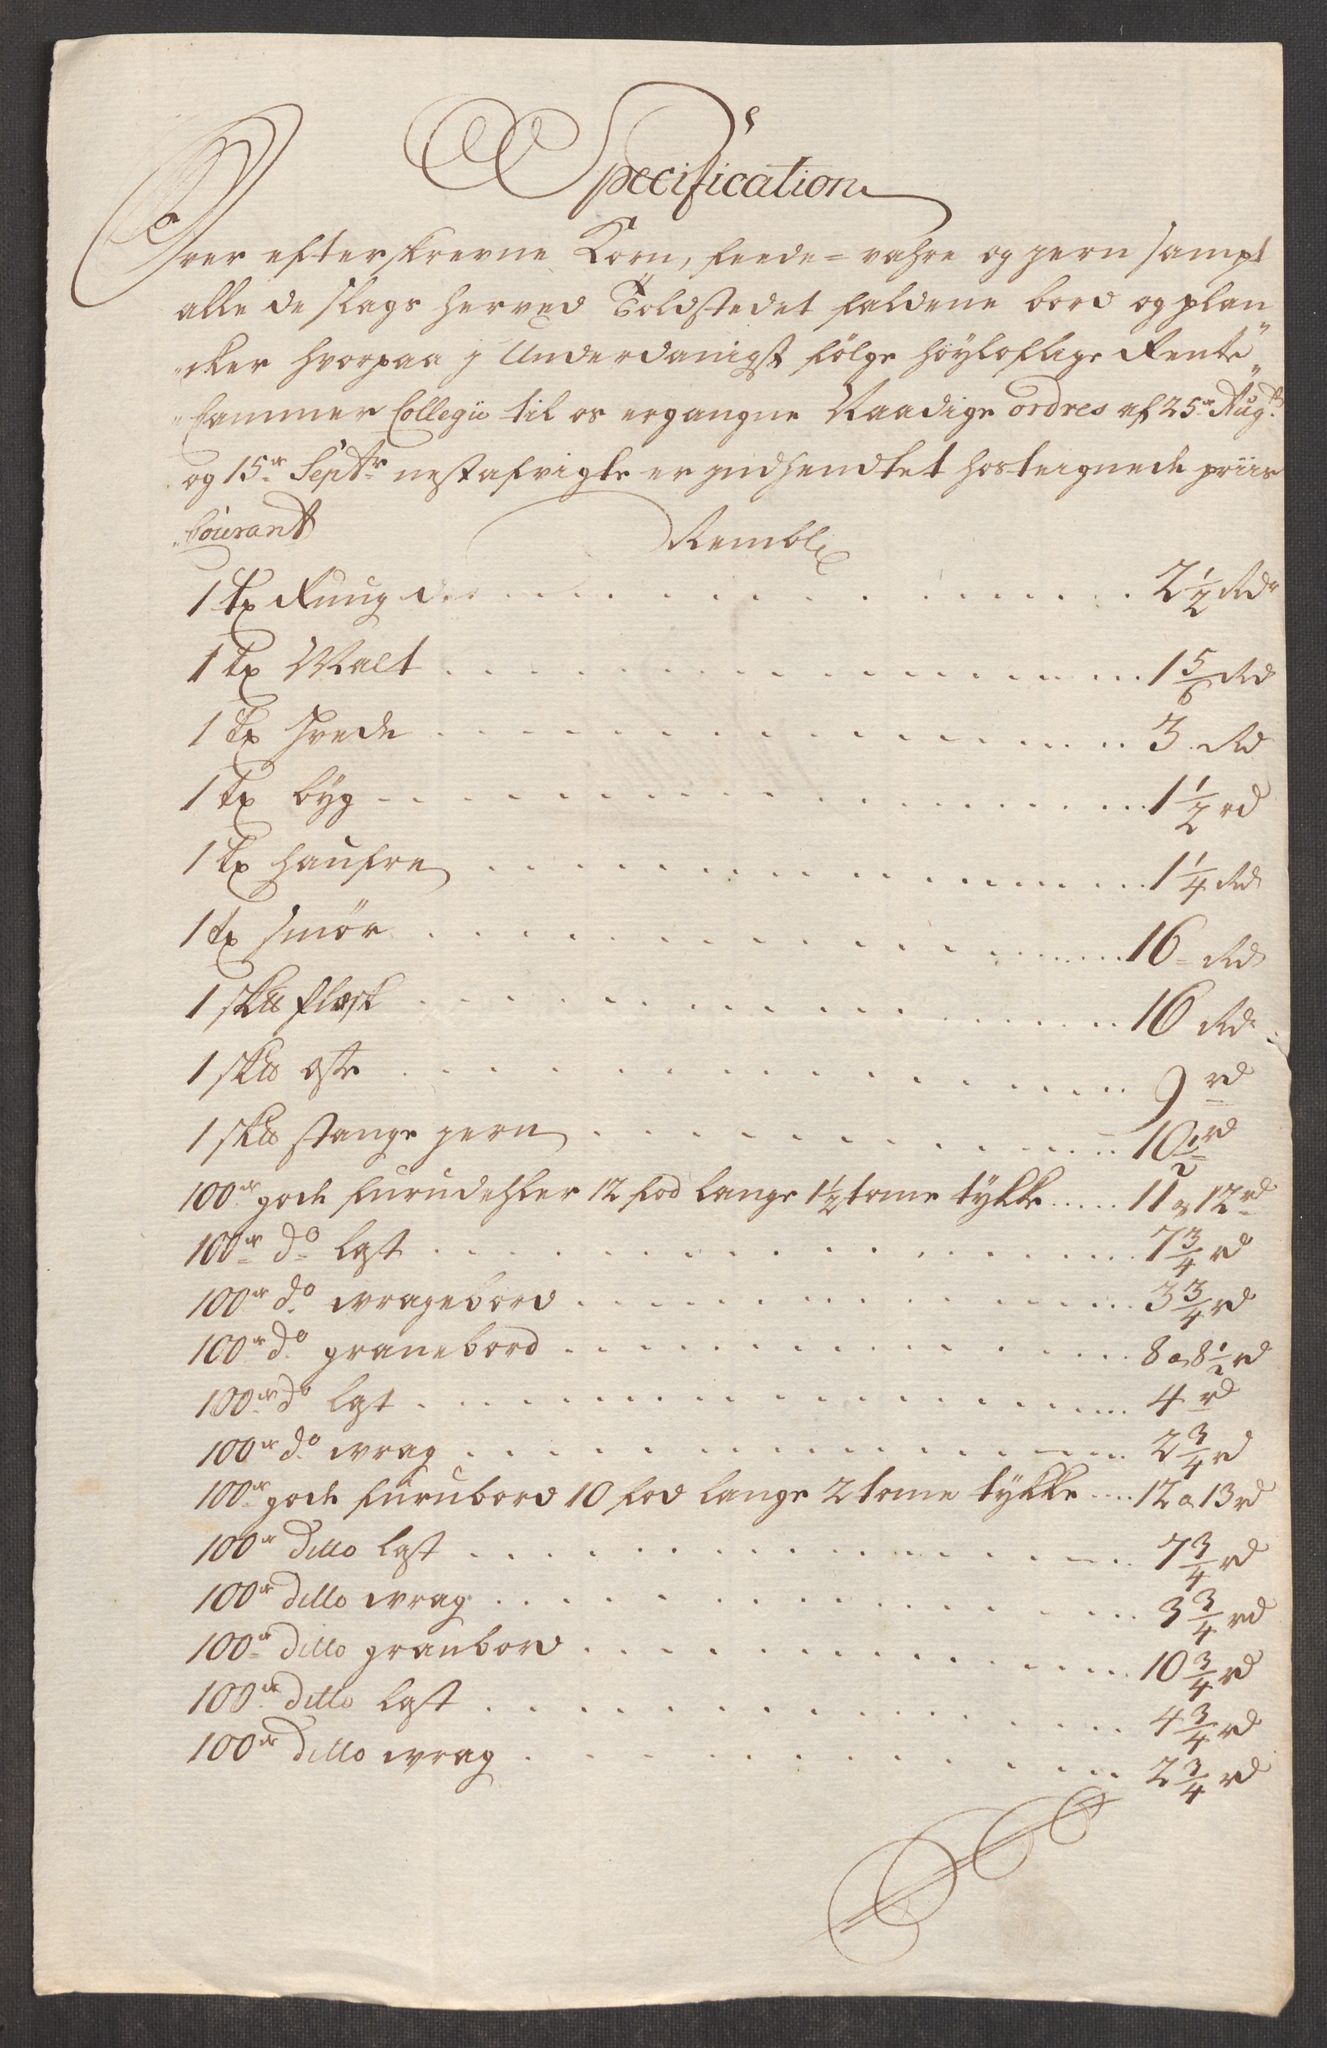 Specification
Over efterskrevne Korn, feede-vahre og jern sampt
alle de slags herved Toldstedet faldene bord og plan
cker hvorpaa j Underdanigst fölge höyloflige Rente
Cammer Collegii til os ergangne Naadige ordres af 25de Augti
og 15de Septr nestafvigte er indhendtet hostegnede priis
Courant
Nemblig
1 tr Ruug 2 1/2 Rdr
1 tr Malt 1 5/6 Rd
1 tr hvede 3 Rd
1 tr byg 1 1/2 rd
1 tr haufre 1 1/4 Rd
1 tr smör 16 Rd
1 sklb flesk 16 Rd
1 sklb ost 9 rd
1 sklb stange jern 10 1/2 rd
100de gode furudehler 12 fod lange 1 1/2 tome tykke 11 a 12 rd
100de do lest 7 3/4 rd
100de do wragebord 3 3/4 rd
100de do granebord 8 a 8 1/2 rd
100de do lest 4 rd
100de do wrag 2 3/4 rd
100de gode furubord 10 fod lange 2 tome tykke 12 a 13 rd
100de ditto lest 7 3/4 rd
100de ditto wrag 3 3/4 rd
100de ditto granbord 10 3/4 rd
100de ditto lest 4 3/4 rd
100de ditto wrag 2 3/4 rd